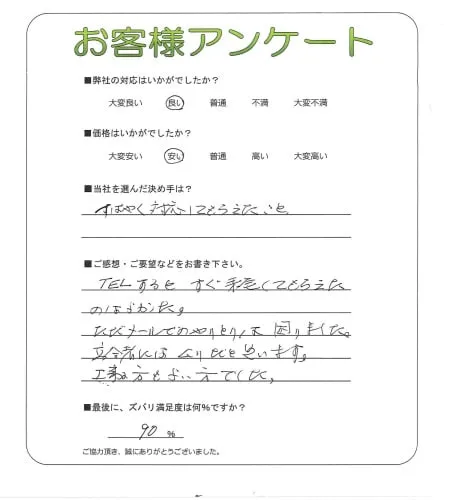 お客様アンケート
■弊社の対応はいかがでしたか？
大変良い 良い 普通 不満 大変不満
■価格はいかがでしたか？
大変安い 安い 普通 高い 大変高い
■当社を選んだ決め手は？
すばやく対応してもらえたこと
■ご感想・ご要望などをお書き下さい。
TELするとすぐ手配してもらえた
のはよかった。
ただメールでのやりとりは困りました。
には と思います。
工事の方もよい方でした。
■最後に、ズバリ満足度は何%ですか？
90 %
ご協力頂き、誠にありがとうございました。